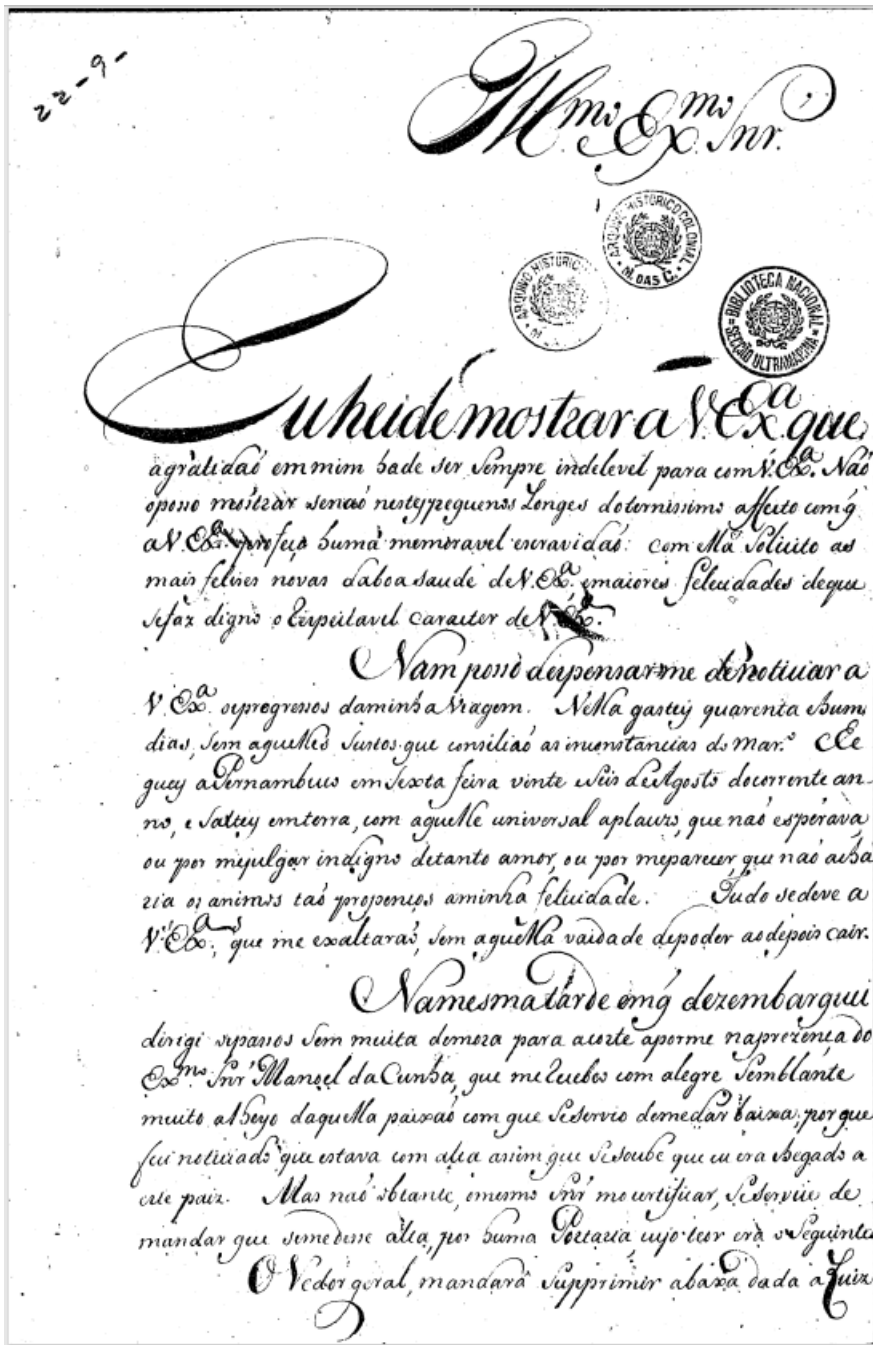 22-9-
Ill.mo Ex.mo Snr.
ARQUIVO HISTORICO COLONIAL
M. DAS C.
ARQUIVO HISTORICO
BIBLIOTECA NACIONAL
SECÇÃO ULTRAMARINA
Eu heide mostrar a V. Ex.a que
agratidaó emmim hade ser sempre indelevel para com V. Ex.a. Naó
oposso mostrar senaó nestes pequenos Longes doternissimo affecto com q̃
a V. Ex.a. profeço humã memoravel escravidaó: com ella solicito as
mais felises novas daboa saude de V. Ex.a, emaiores felecidades deque
sefaz digno o Respeitavel caracter de V. Ex.a.
Nam posso despensarme de noticiar a
V. Ex.a. osprogressos daminha Viagem. Nella gastey quarenta ehum
dias, sem aquelles sustos que consiliaó as inconstancias do mar. Che
guey aPernambuco em Sexta feira vinte eseis de Agosto docorrente an-
no, e saltey emterra, com aquelle universal aplauzo, que naó esperava,
ou por mejulgar indigno detanto amor, ou por meparecer que naó achá
ria os animos taó propenços aminha felicidade. Tudo sedeve a
V. Ex.as, que me exaltaraó, sem aquella vaidade depoder aodepois cair.
Namesma tarde emq̃ dezembarquei
dirigi ospassos sem muita demora para acorte aporme naprezença do
Ex.mo Snr' Manoel da Cunha, que me recebeo com alegre semblante
muito alheyo daquella paixaó com que seservio demedar baixa; por que
fui noticiado que estava com alta assim que sesoube que eu era chegado a
este paiz. Mas naó obtante, omesmo Snr' mo certificar, seservie de
mandar que semedesse alta, por huma Portaria, cujo teor era o seguinte
O Vedor geral, mandará supprimir abaxa dada a Luiz